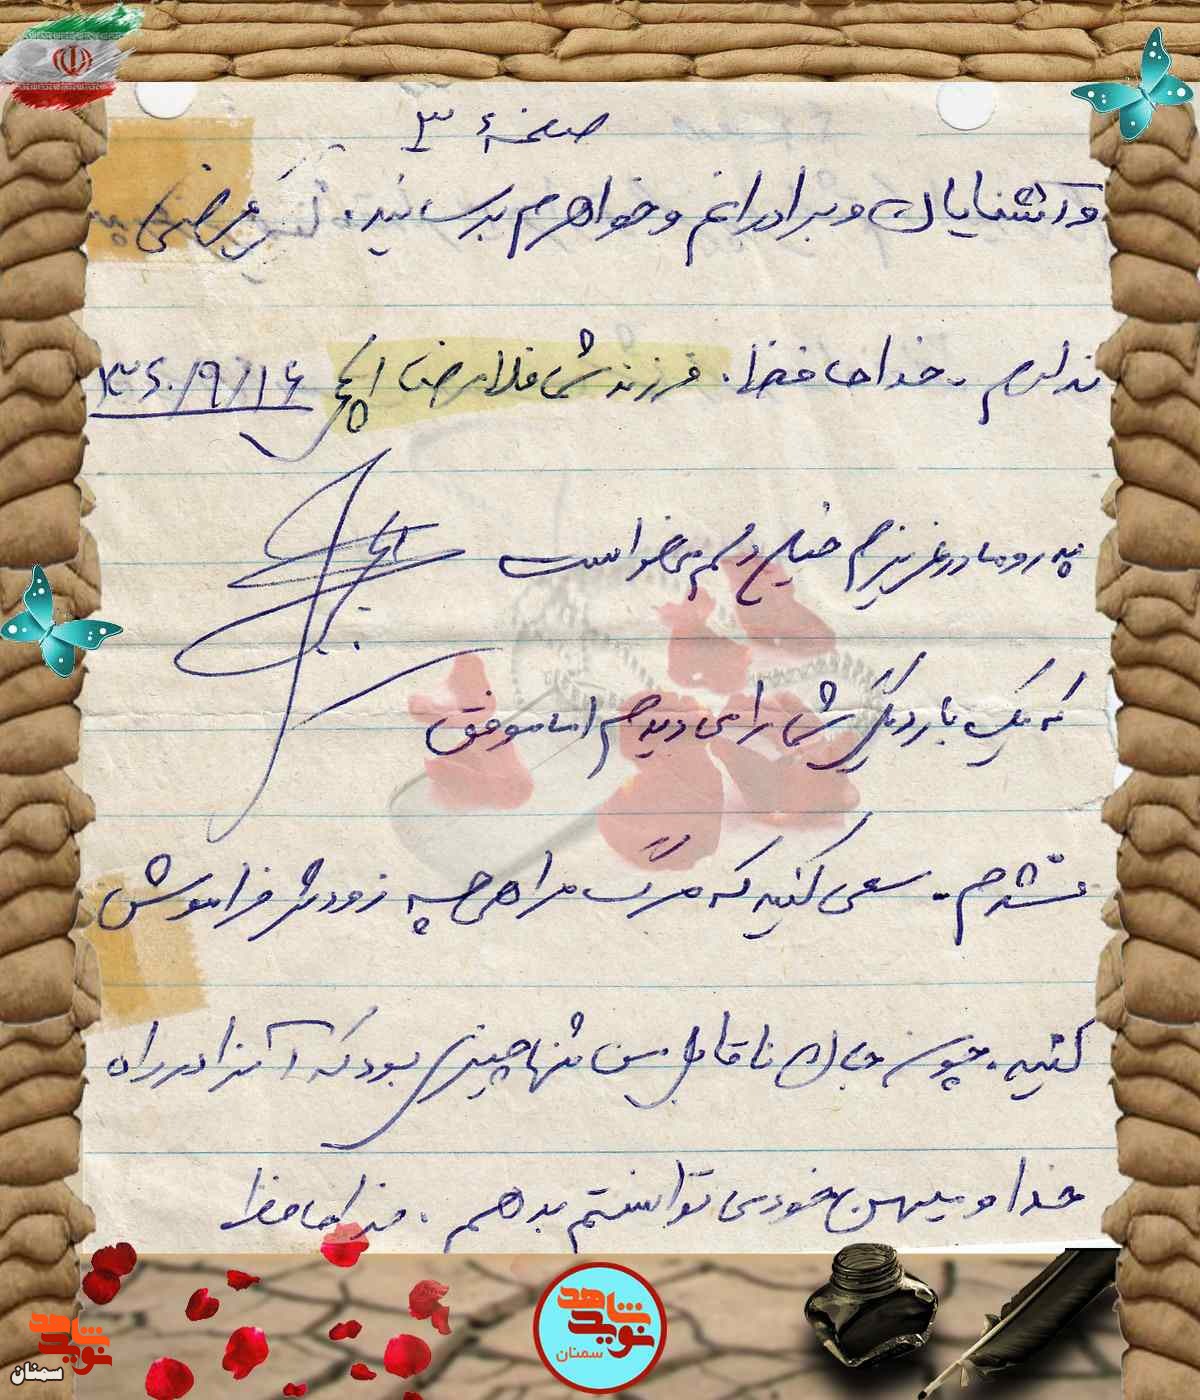 صفحهٔ ۳
و آشنایان و برادرانم و خواهرم برسانید. دیگر عرضی
ندارم. خداحافظ. فرزند شما غلامرضا ۱۳۶۰/۹/۱۶
پدر و مادر عزیزم خیلی دلم می‌خواست
که یک بار دیگر شما را می دیدم اما موفق
نشدم. سعی کنید که مرگ مرا هر چه زودتر فراموش
کنید. چون جان ناقابل من تنها چیزی بود که آنرا در راه
خدا و میهن خودم توانستم بدهم. خداحافظ
نوید شاهد
سمنان
نوید شاهد
سمنان